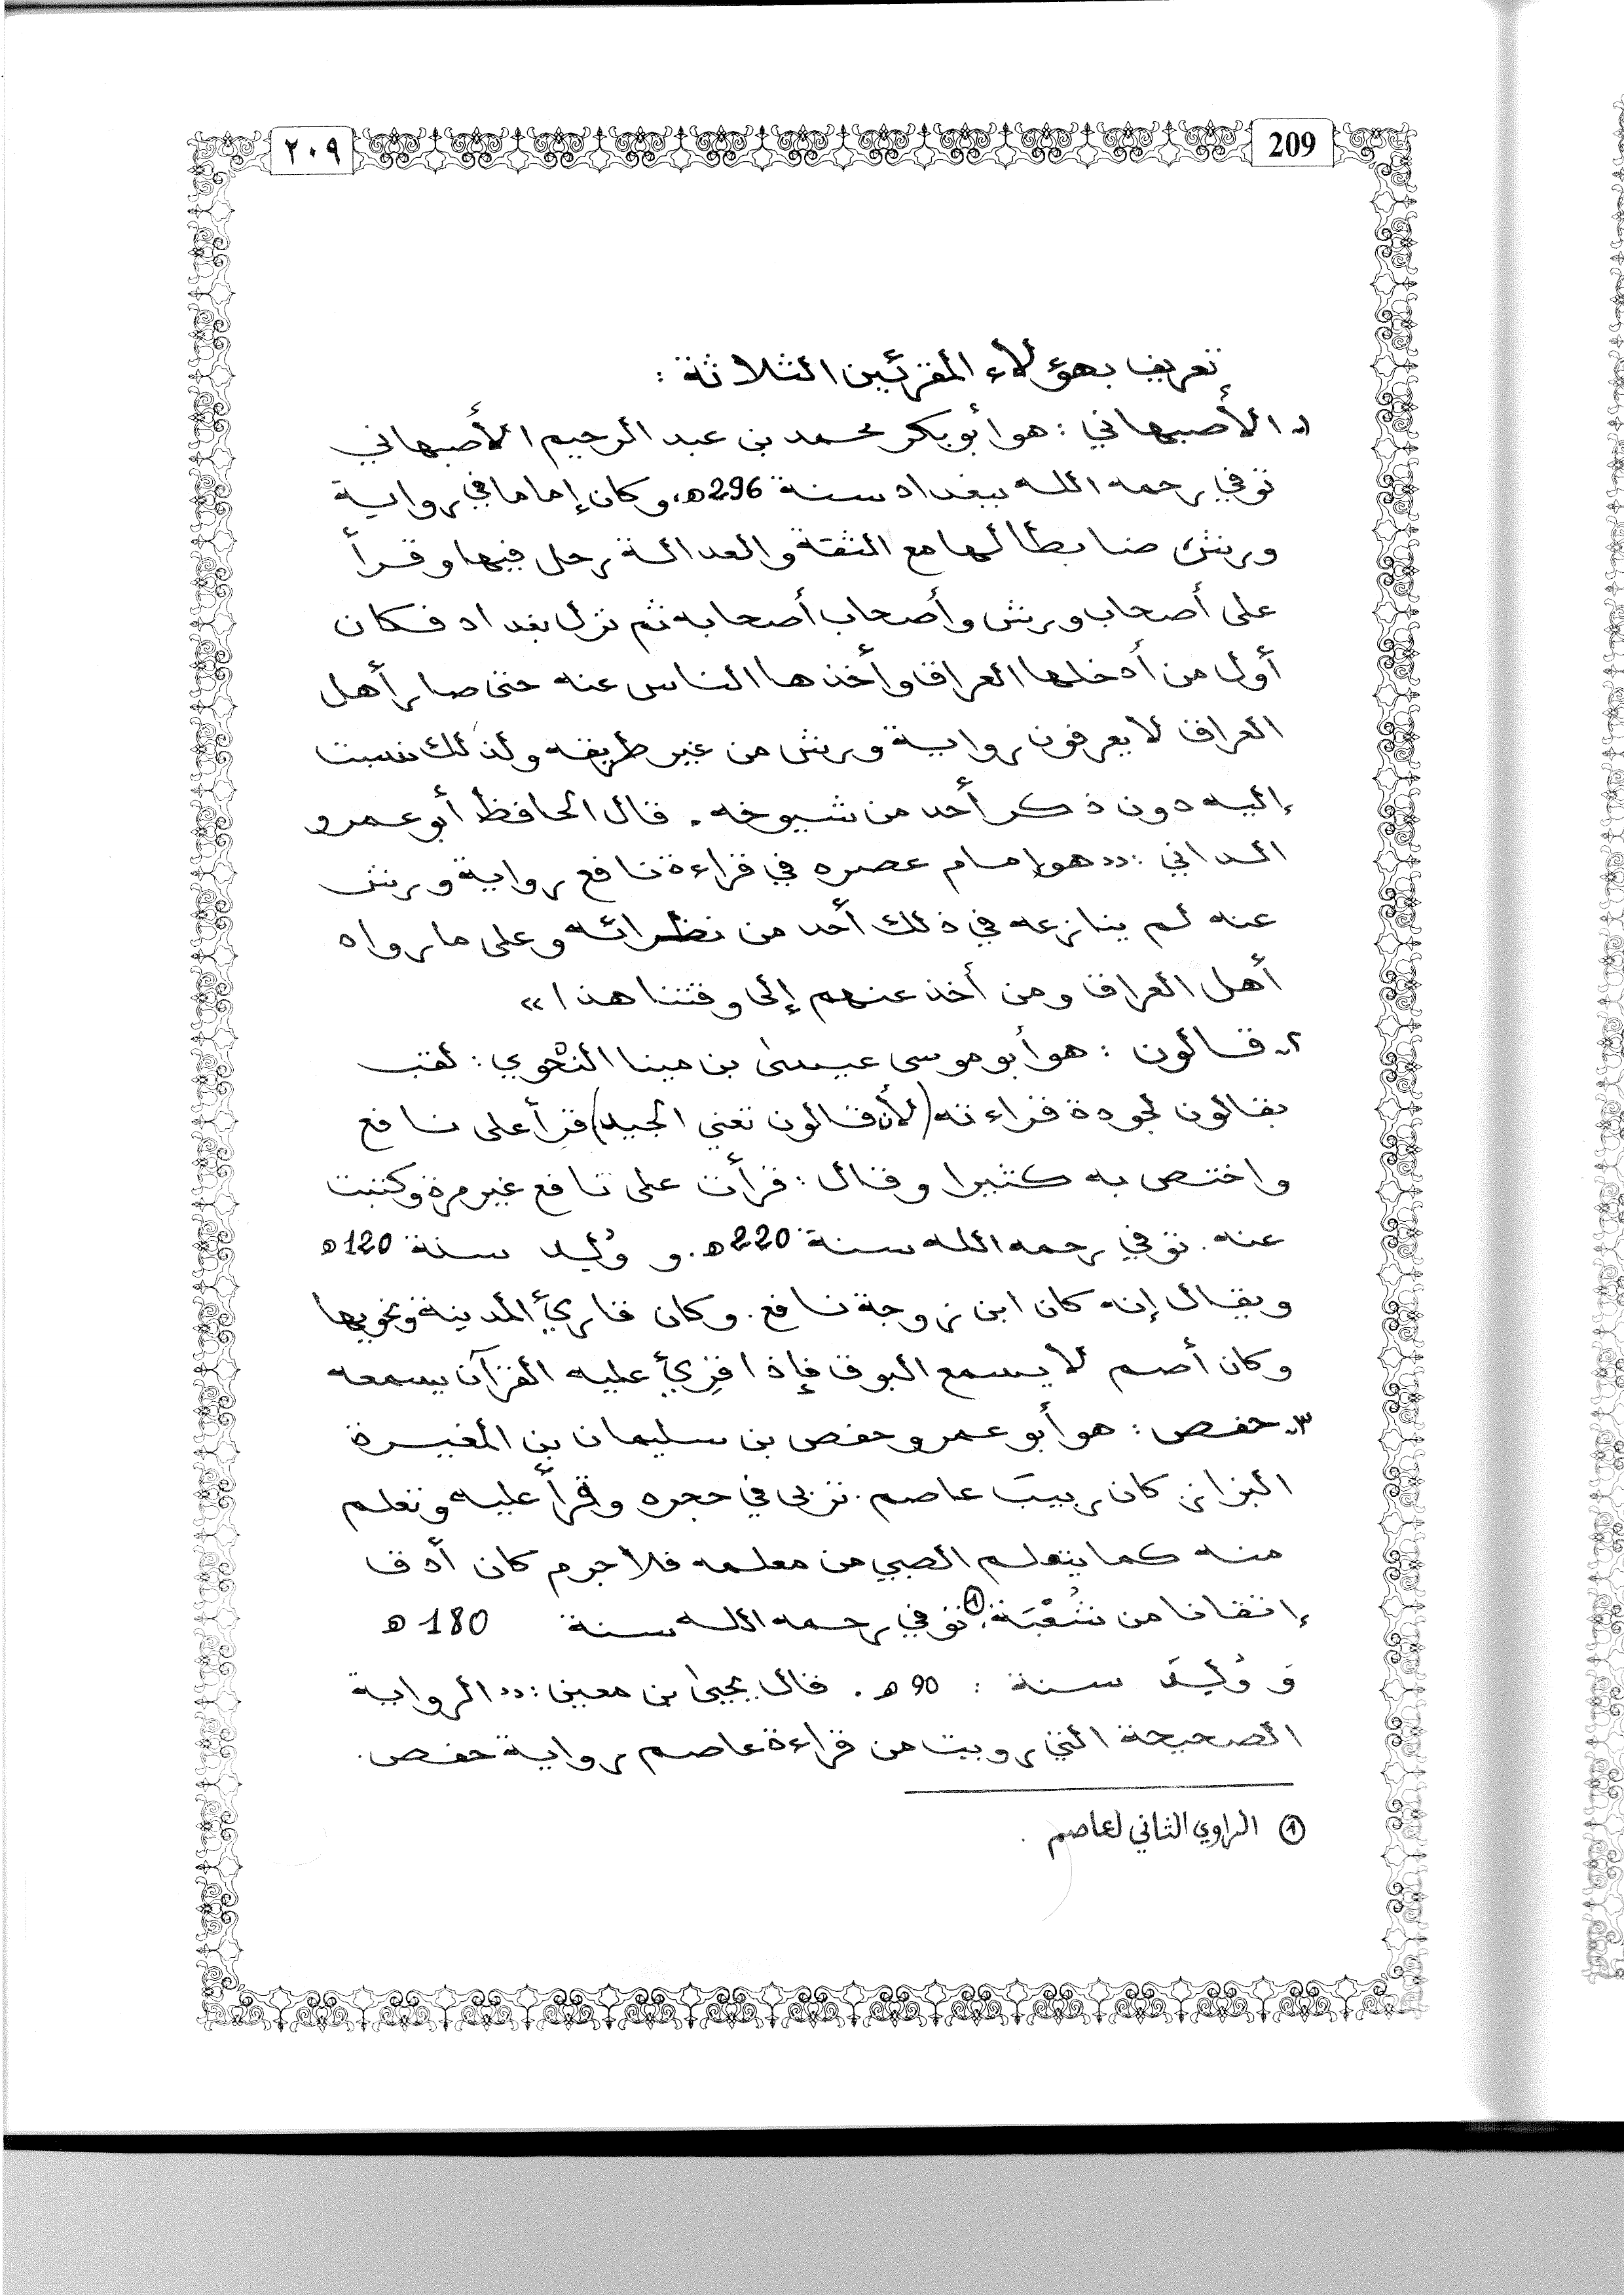 209
٢٠٩
تعريف بهؤلاء المقرئين الثلاثة :
١- الأصبهاني : هو أبو بكر محمد بن عبد الرحيم الأصبهاني
توفي رحمه الله ببغداد سنة 296ه، وكان إماما في رواية
ورش ضابطا لها مع الثقة والعدالة رحل فيها وقرأ
على أصحاب ورش وأصحاب أصحابه ثم نزل بغداد فكان
أول من أدخلها العراق وأخذها الناس عنه حتى صار أهل
العراق لا يعرفون رواية ورش من غير طريقه ولذلك نسبت
إليه دون ذكر أحد من شيوخه . قال الحافظ أبو عمرو
الداني : «هو إمام عصره في قراءة نافع رواية ورش
عنه لم ينازعه في ذلك أحد من نظرائه وعلى ما رواه
أهل العراق ومن أخذ عنهم إلى وقتنا هذا»
٢- قالون : هو أبو موسى عيسى بن مينا النحوي : لقب
بقالون لجودة قراءته (لأن قالون تعني الجيد) قرأ على نافع
واختص به كثيرا وقال : قرأت على نافع غير مرة وكتبت
عنه . توفي رحمه الله سنة 220ه . و وُلِد سنة 120ه
ويقال إنه كان ابن زوجة نافع . وكان قارئ المدينة ونحويها
وكان أصم لا يسمع البوق فإذا قرئ عليه القرآن يسمعه
٣- حفص : هو أبو عمرو حفص بن سليمان بن المغيرة
البزاز كان ربيبَ عاصم . تربى في حجره وقرأ عليه وتعلم
منه كما يتعلم الصبي من معلمه فلا جرم كان أدق
إتقانا من شُعْبَة ①. توفي رحمه الله سنة 180 ه
وَ وُلِدَ سنة : 90 ه . قال يحيى بن معين : «الرواية
الصحيحة التي رويت من قراءة عاصم رواية حفص .
① الراوي الثاني لعاصم .